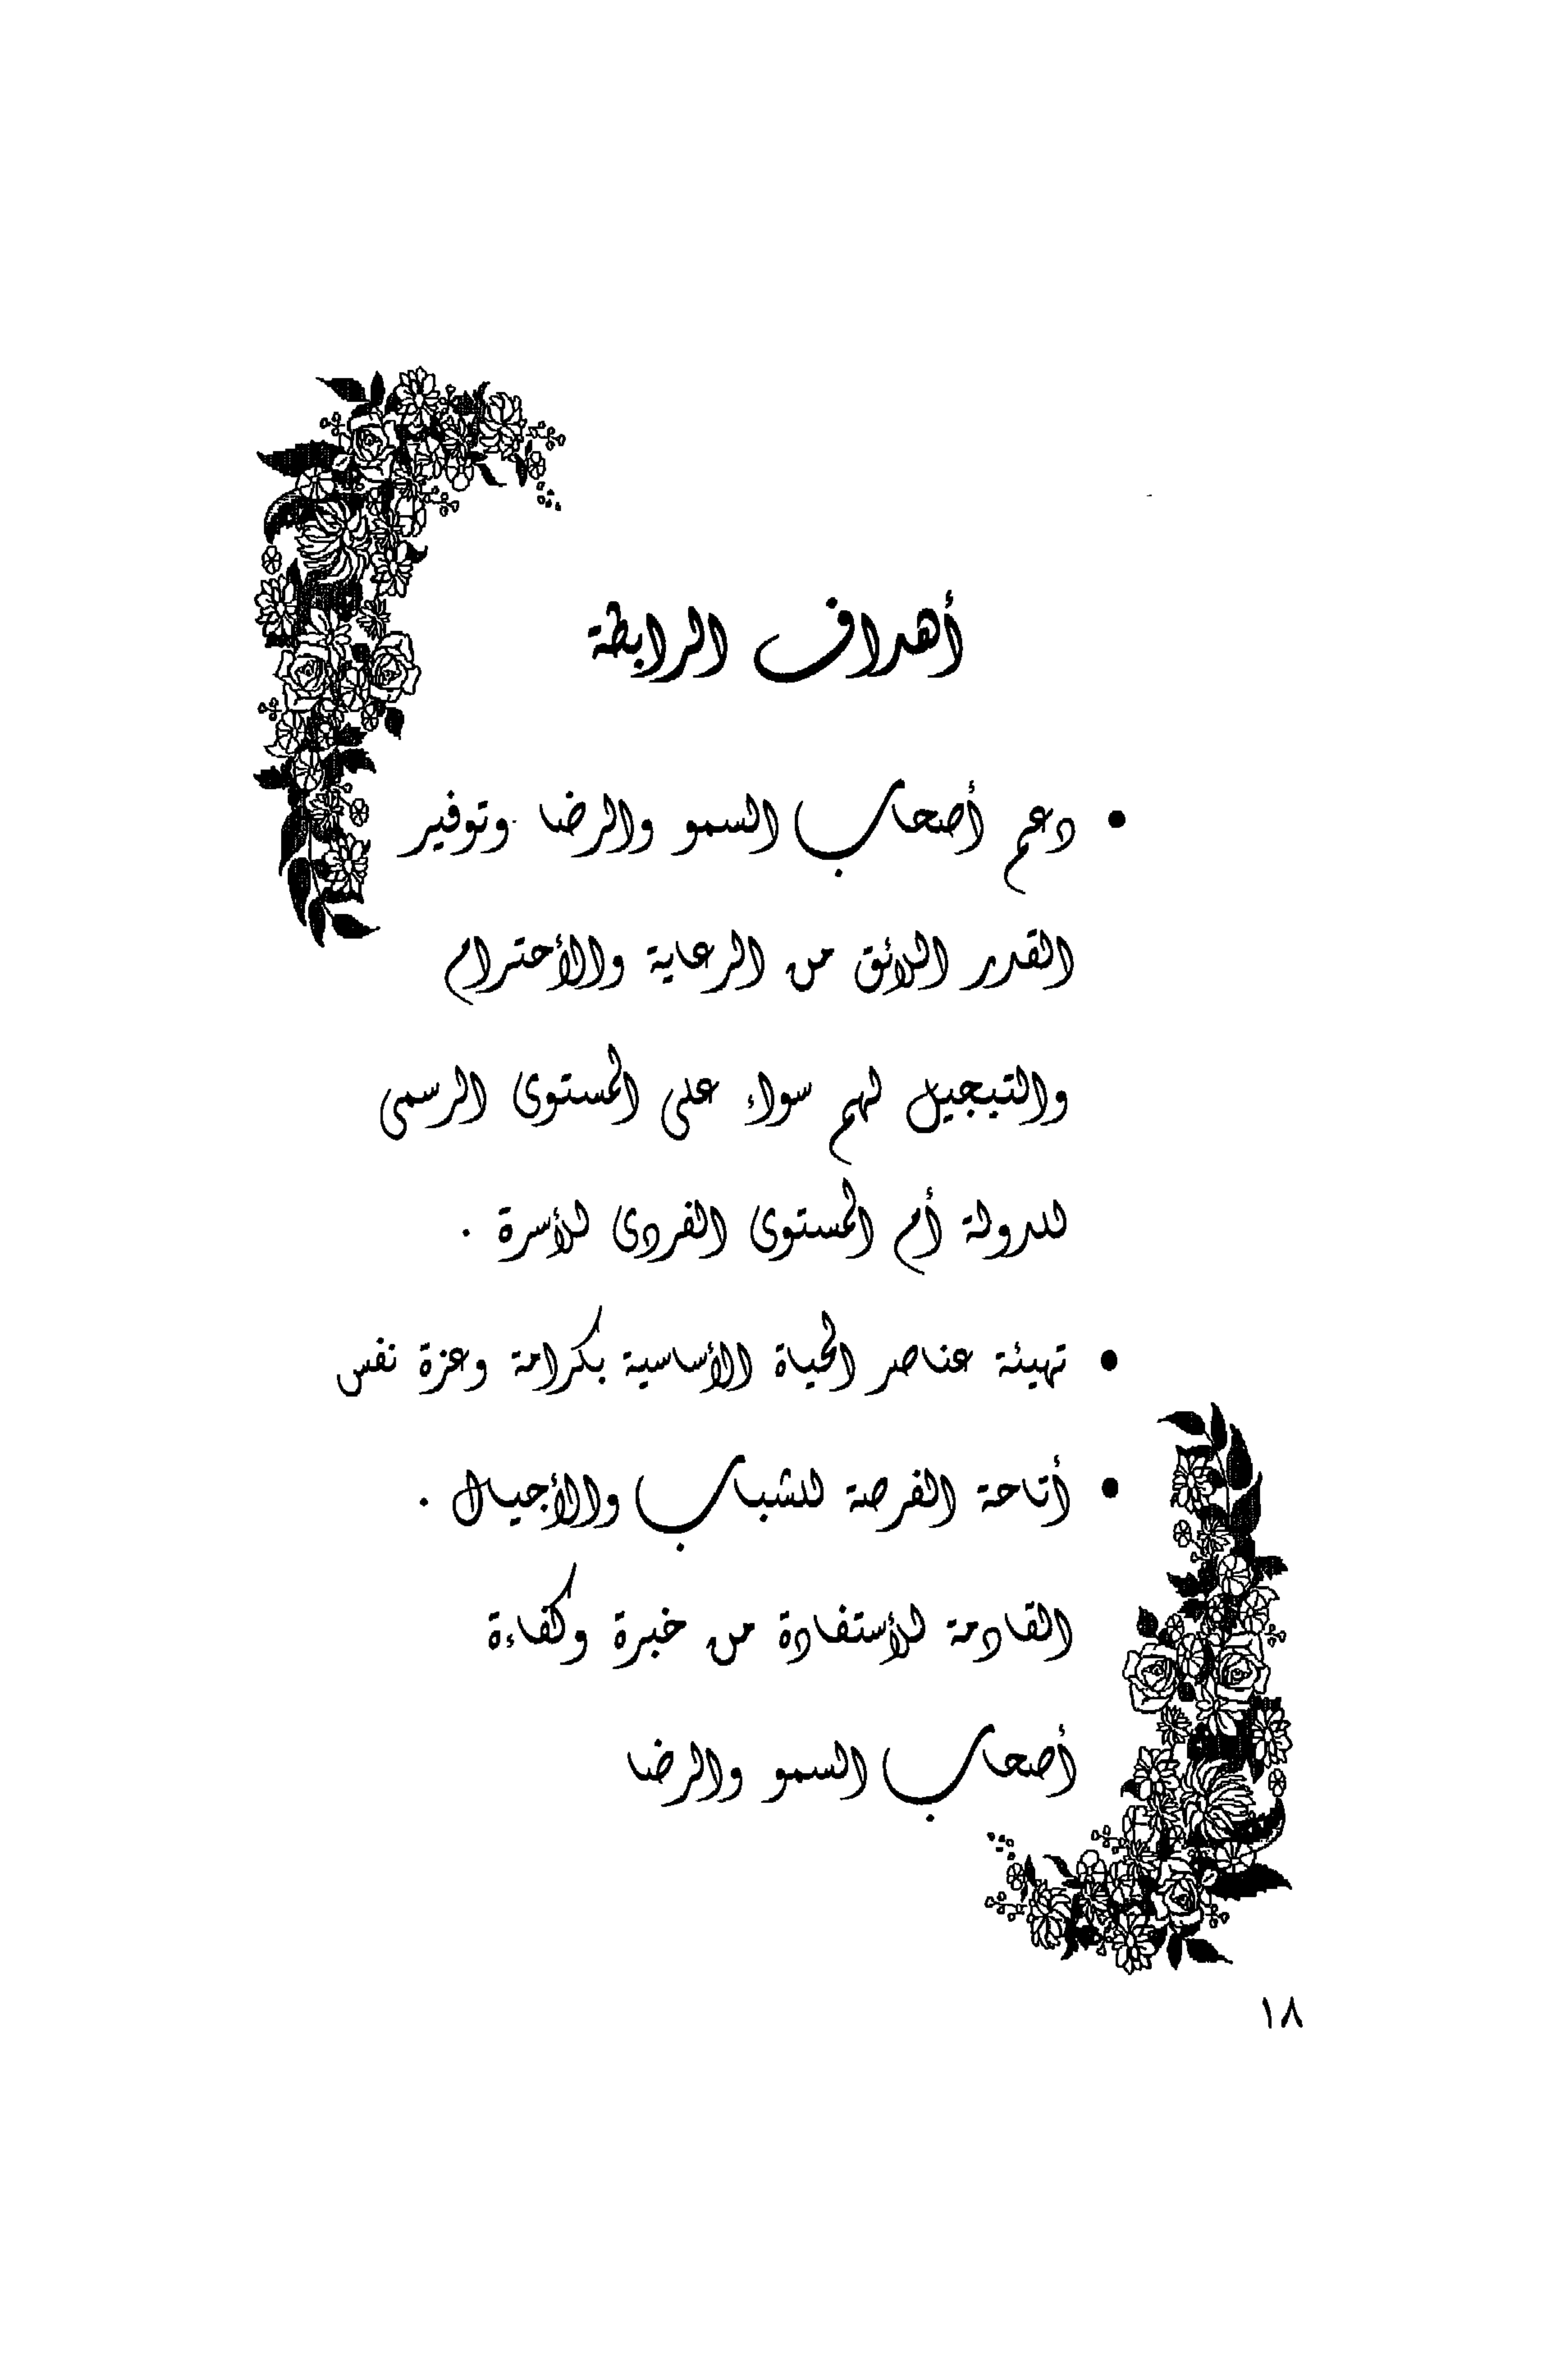 أهداف الرابطة
• دعم أصحاب السمو والرضا وتوفير
القدر اللائق من الرعاية والأحترام
والتبجيل لهم سواء على المستوى الرسمى
للدولة أم المستوى الفردى للأسرة .
• تهيئة عناصر الحياة الأساسية بكرامة وعزة نفس
• أتاحة الفرصة للشباب والأجيال .
القادمة للأستفادة من خبرة وكفاءة
أصحاب السمو والرضا
١٨